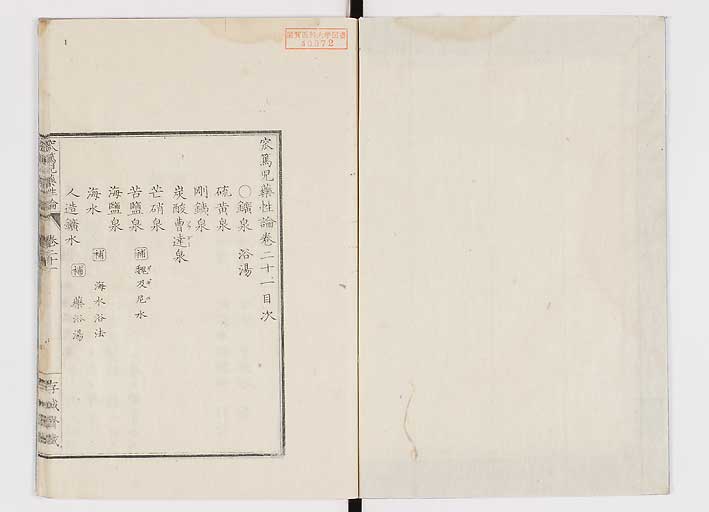 滋賀医科大学図書
50372
1
㝮篤児藥性論卷二十一目次
〇鑛泉 浴湯
硫黄泉
剛鐵泉
炭酸曹達泉
芒硝泉
苦鹽泉 補 魏及尼水
海鹽泉
海水 補 海水浴法
人造鑛水 補 藥浴湯
藥性論 卷二十一